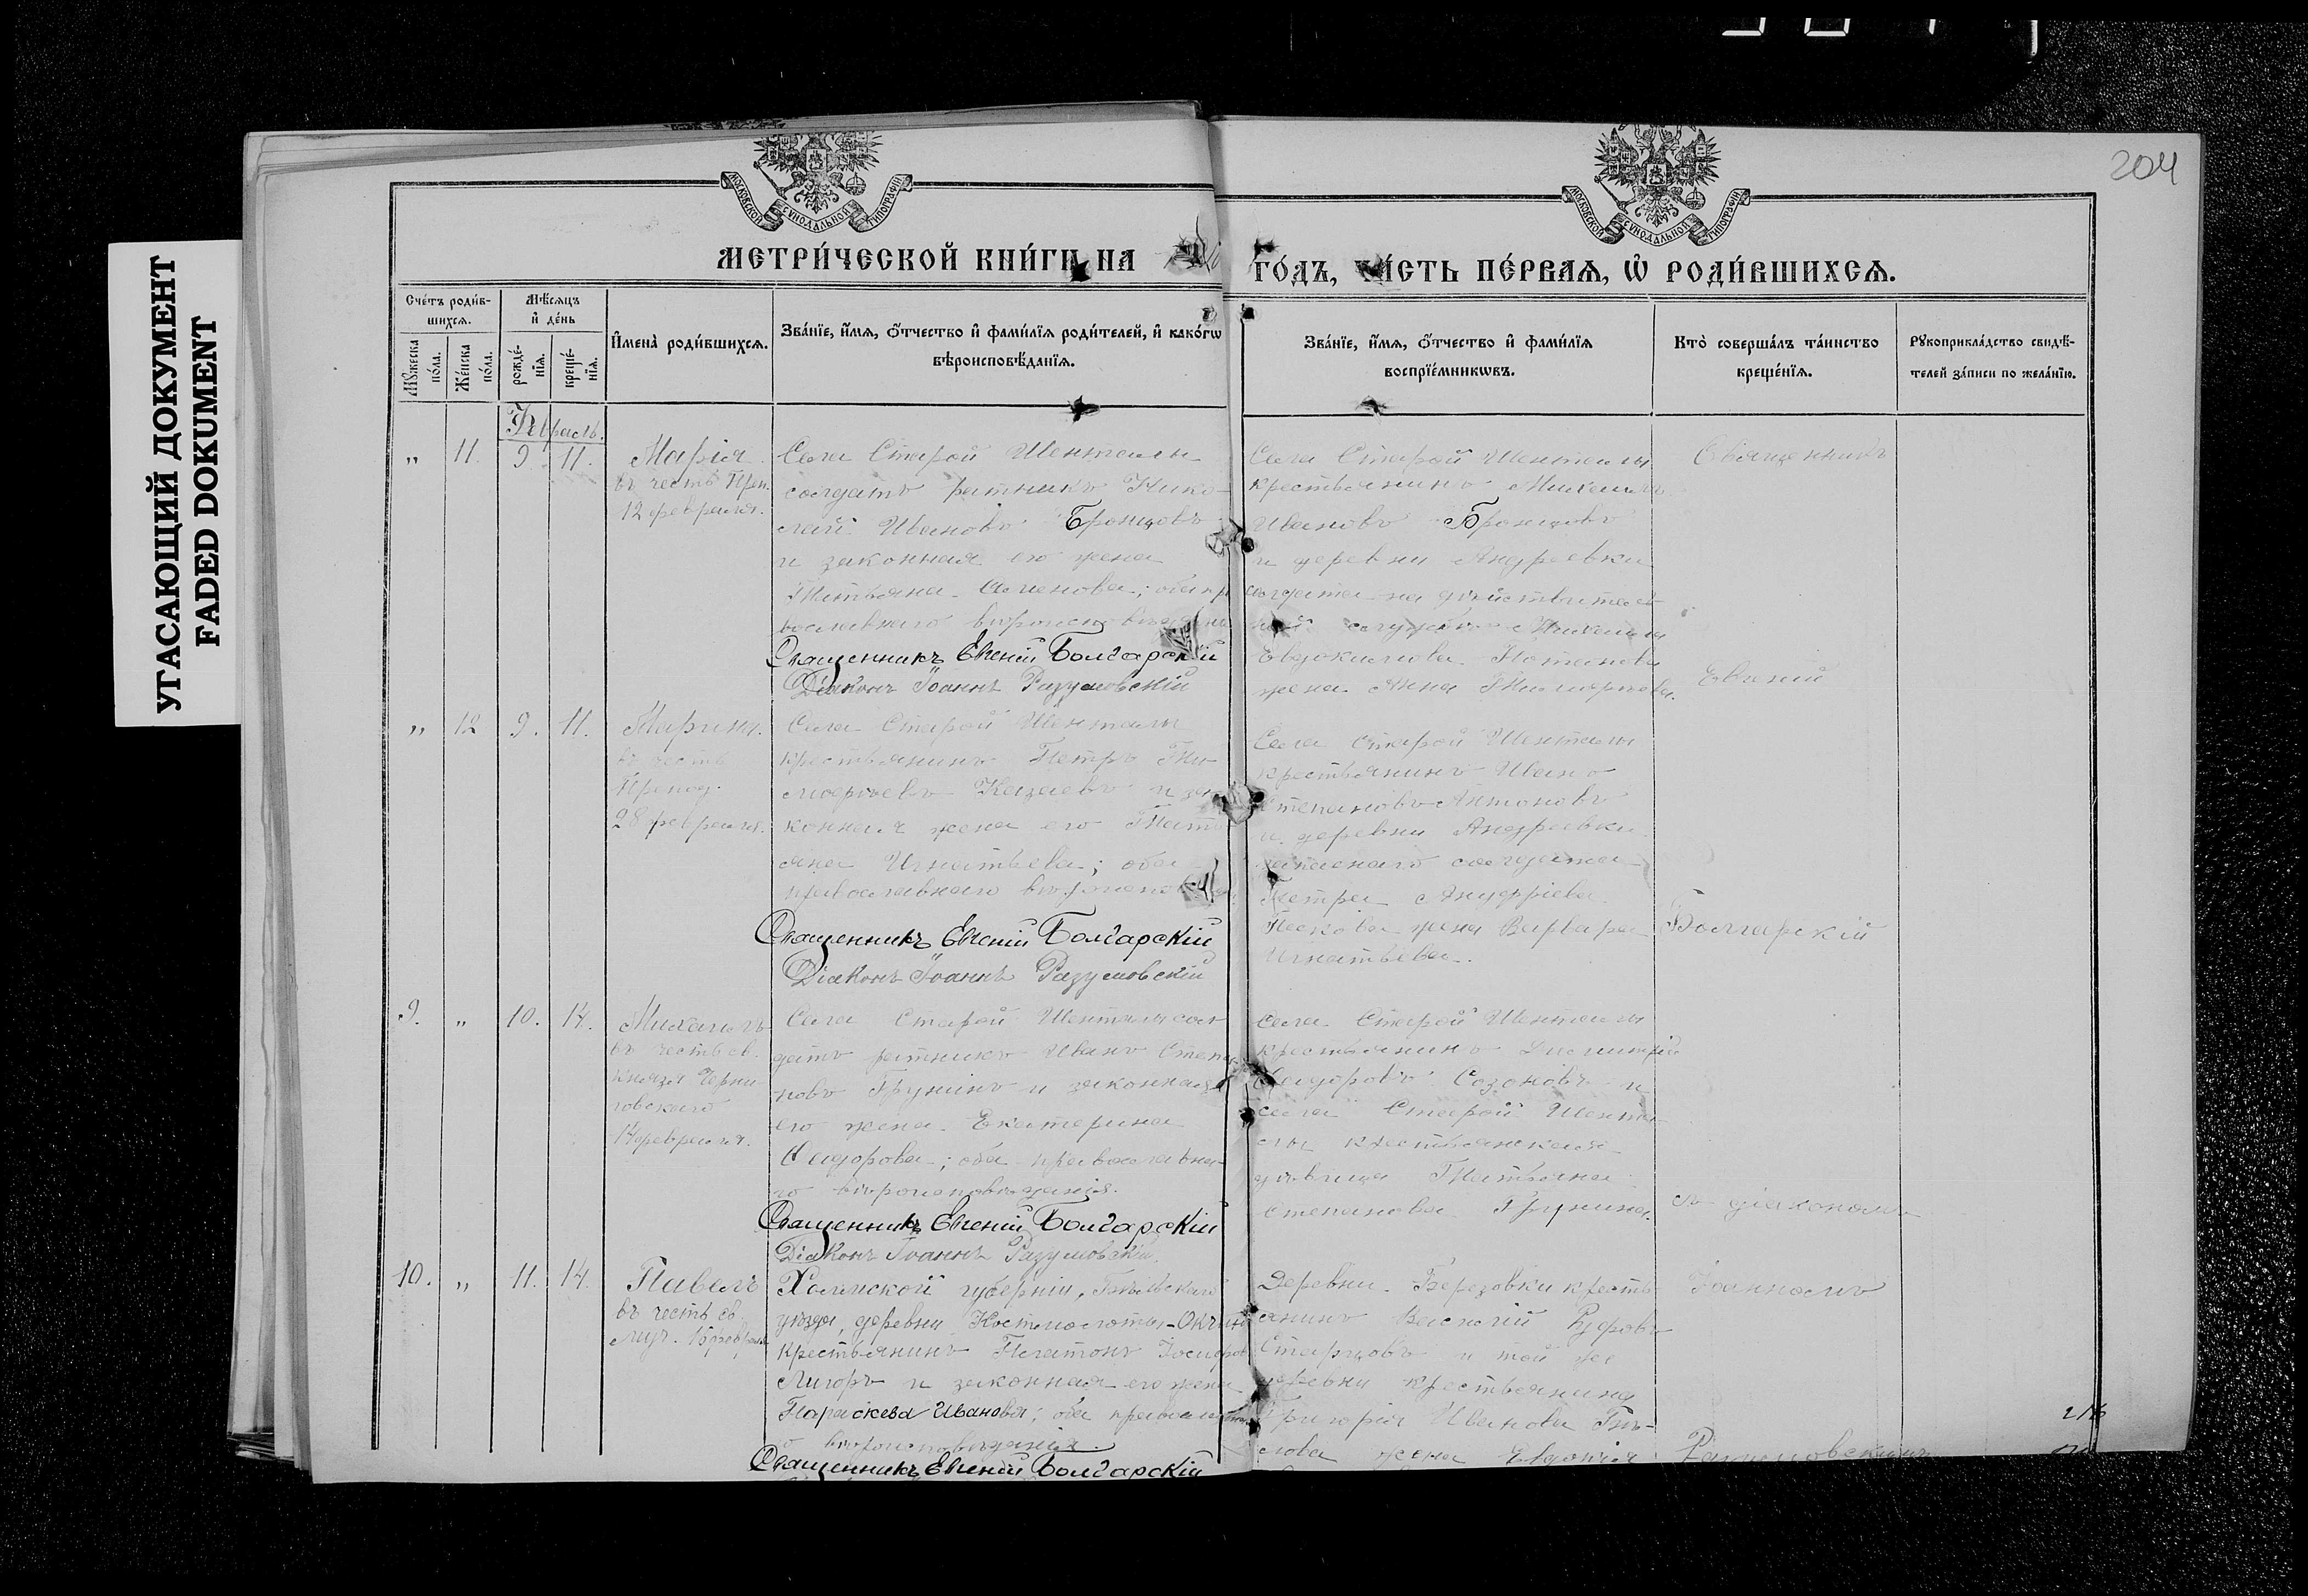 204
УГАСАЮЩИЙ ДОКУМЕНТ
FADED DOKUMENT
МОСКОВСКОЙ СУНОДАЛЬНОЙ ТИПОГРАФІИ
МОСКОВСКОЙ СУНОДАЛЬНОЙ ТИПОГРАФІИ
МЕТРИ́ЧЕСКОЙ КНИ́ГИ НА
ГО́ДЪ, ЧА́СТЬ ПЕ́РВАЯ, Ѡ҆ РОДИ́ВШИХСЯ.
Сче́тъ роди́в-
шихся.
Мѣ́сяцъ
и҆ де́нь
Мꙋ́жеска
по́ла.
Же́нска
по́ла.
рожде́-
нїя.
креще́-
нїя.
И҆мена̀ роди́вшихся.
Зва́нїе, и҆́мя, ѻ҆́тчество и҆ фами́лїя роди́телей, и҆ како́гѡ
вѣроисповѣ́данїя.
Зва́нїе, и҆́мя, ѻ҆́тчество и҆ фами́лїя
воспрїе́мникѡвъ.
Кто̀ соверша́лъ та́инство
креще́нїя.
Рꙋкоприкла́дство свидѣ́-
телей за́писи по жела́нїю.
Февраль.
„ 11. 9. 11.
Марія
въ честь Преп.
12 февраля.
Села Старой Шенталы
солдатъ ратникъ Нико-
лай Ивановъ Бронцовъ
и законная его жена
Татьяна Семенова; оба пр
вославнаго вѣроисповѣдан
Священникъ Евгеній Болгарскій
Діаконъ Іоаннъ Разумовскій
Села Старой Шенталы
крестьянинъ Михаилъ
Ивановъ Бронцовъ
и деревни Андреевки
солдата на дѣйствитель
ной службѣ
Евдокимова Потапова
жена Анна
Священникъ
Евгеній
„ 12 9. 11.
Марина.
въ честь
Препод.
28 февраля.
Села Старой Шенталы
крестьянинъ Петръ Ти-
мофѣевъ Казаевъ и за
конная жена его Тать
яна Игнатьева; оба
православнаго вѣроисповѣд
Священникъ Евгеній Болгарскій
Діаконъ Іоаннъ Разумовскій
Села Старой Шенталы
крестьянинъ Иванъ
Степановъ Антоновъ
и деревни Андреевки
запаснаго солдата
Петра
Пескова жена Варвара
Игнатьева.
Болгарскій
9. „ 10. 14.
Михаилъ
въ честь св.
Князя Черни
говскаго
14 февраля.
Села Старой Шенталы сол
датъ ратникъ Иванъ Степа
новъ Грунинъ и законная
его жена Екатерина
Сидорова; оба православна-
го вѣроисповѣданія.
Священникъ Евгеній Болгарскій
Діаконъ Іоаннъ Разумовскій.
Села Старой Шенталы
крестьянинъ Димитрій
Сидоровъ Созоновъ и
села Старой Шента
лы крестьянская
дѣвица Татьяна
Степанова Грунина.
съ діакономъ
10. „ 11. 14.
Павелъ
въ честь св.
муч. 16 февраля
Холмской губерніи, Бѣльскаго
уѣзда, деревни
крестьянинъ Платонъ
и законная его жена
Параскева Иванова; оба православна
го вѣроисповѣданія.
Священникъ Евгеній Болгарскій
Деревни Березовки кресть
янинъ Василій
Старцовъ и той же
деревни крестьянина
Григорія Иванова
слова жена Евдокія
Іоанномъ
Разумовскимъ